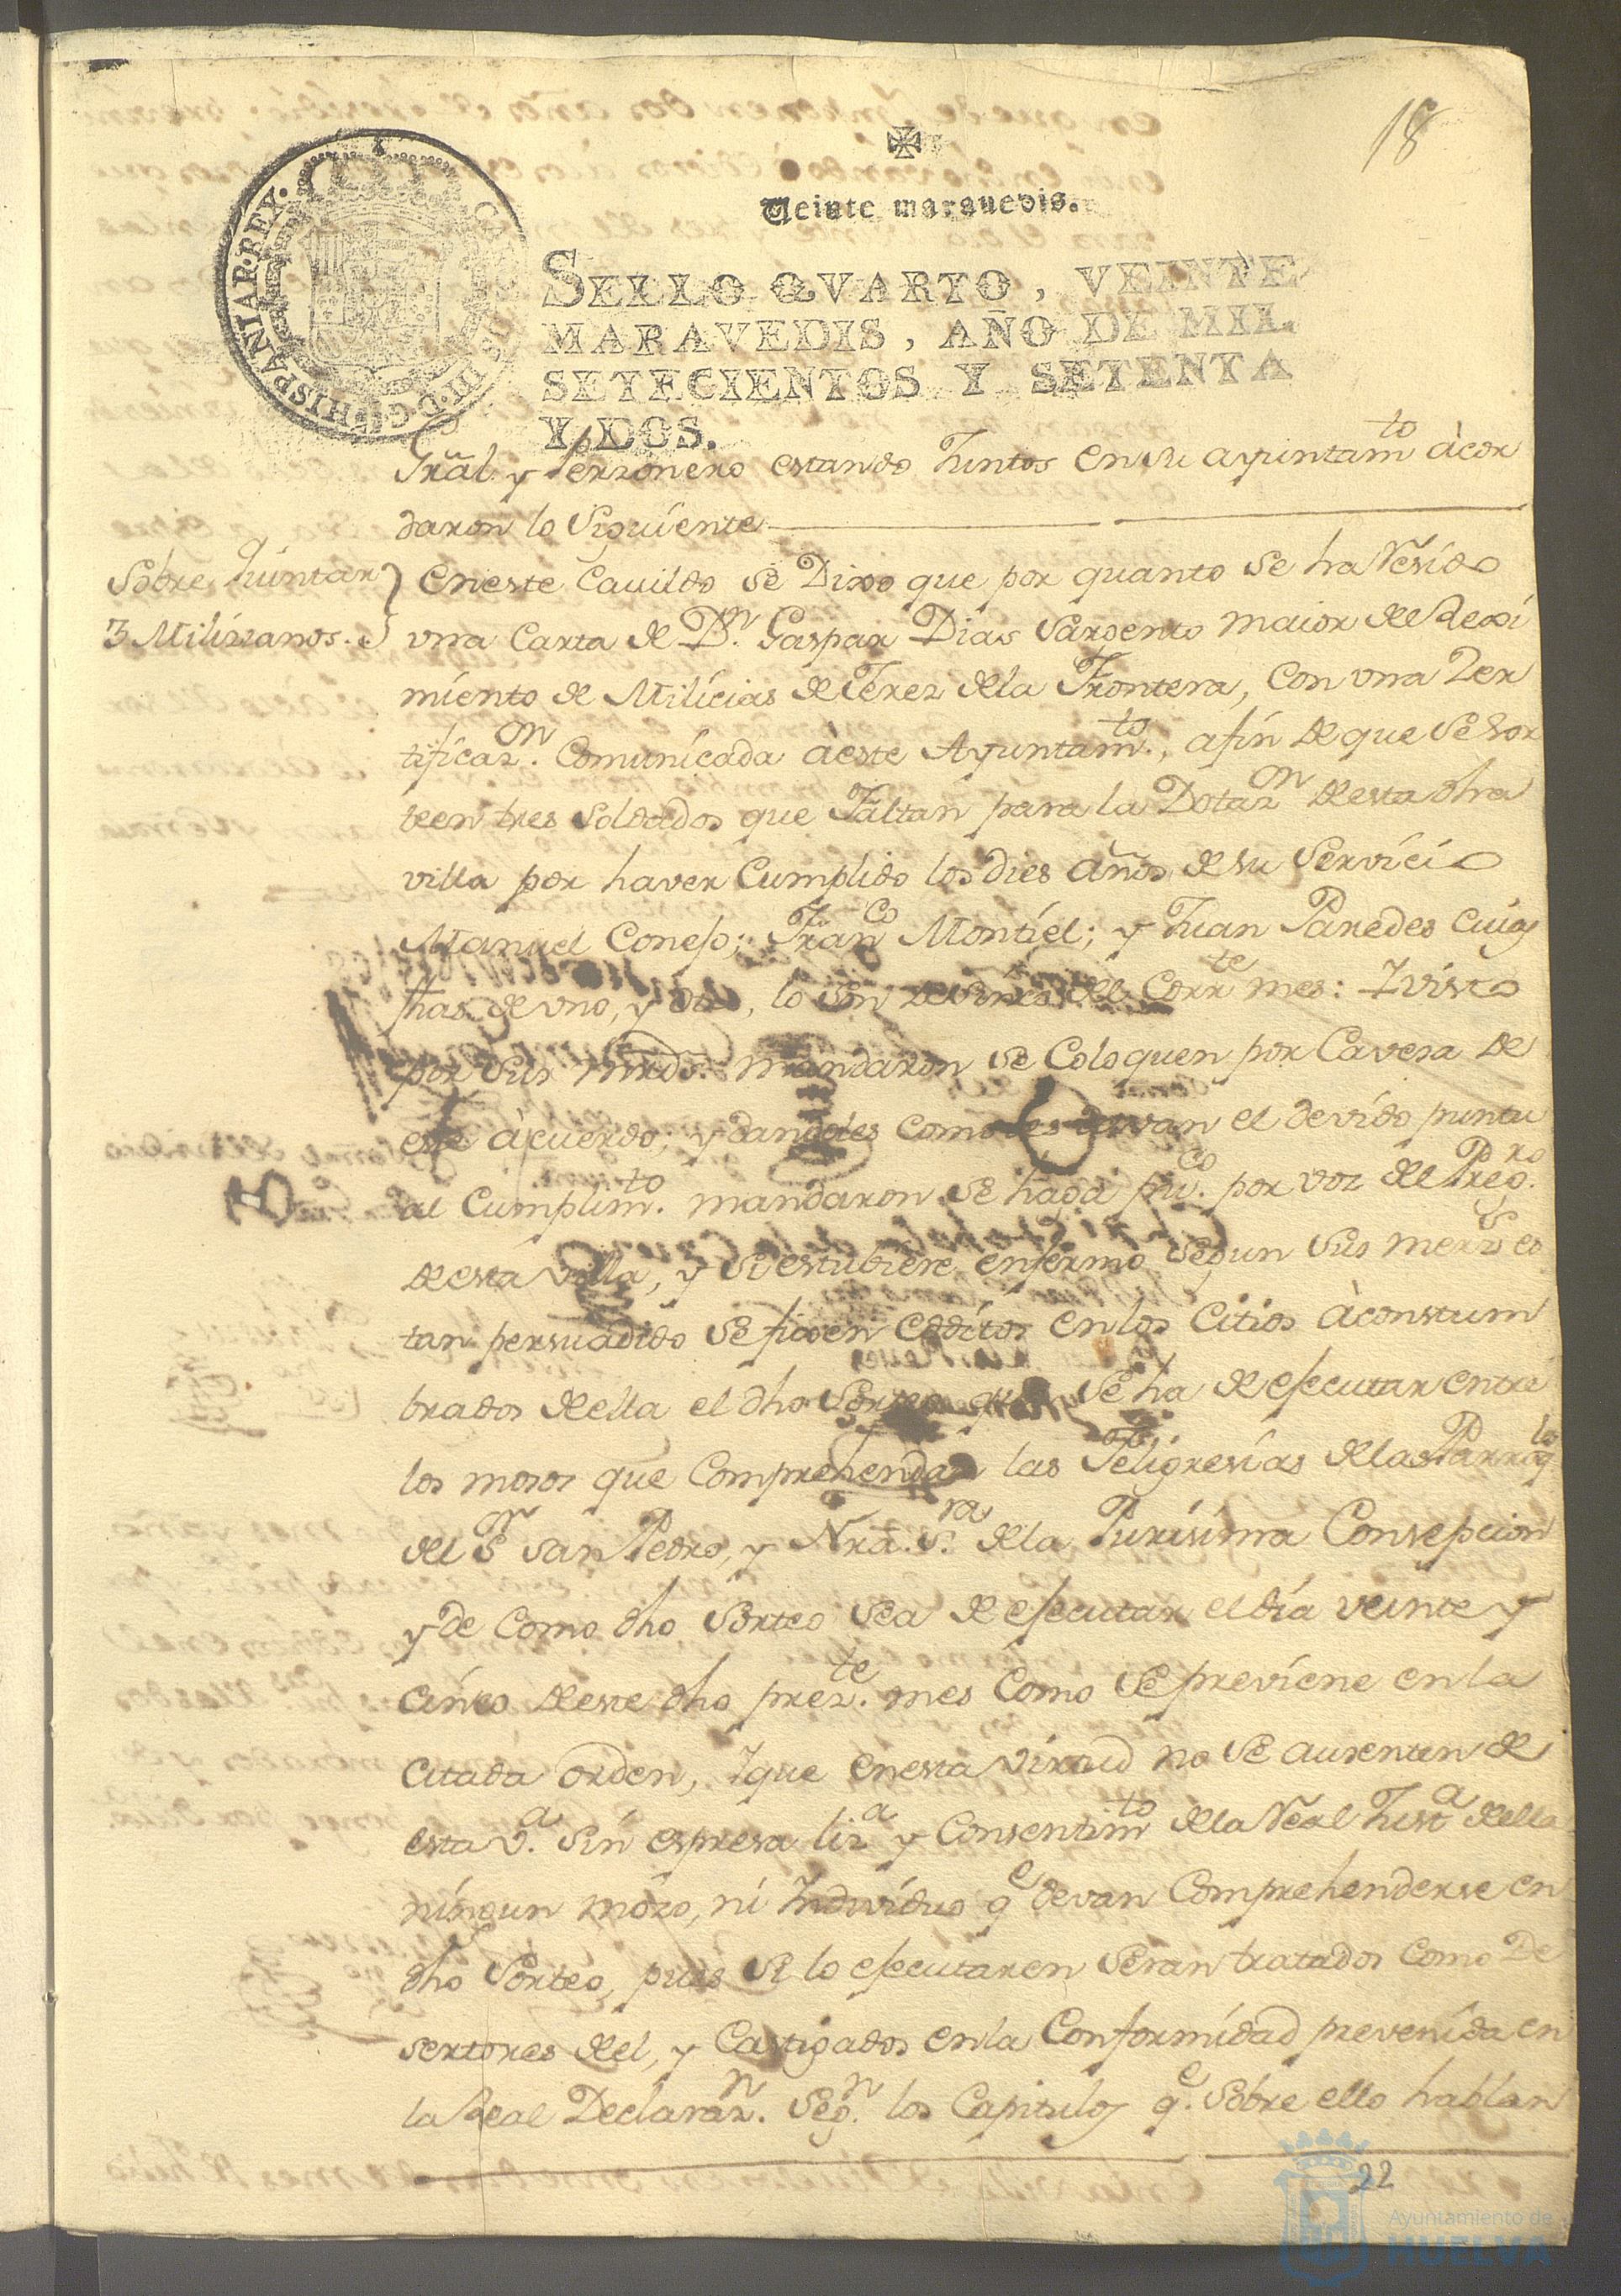 18
Veinte maravedis.
SELLO QVARTO, VEINTE
MARAVEDIS, AÑO DE MIL
SETECIENTOS Y SETENTA
Y DOS.
HISPANIAR·REX·
III·D·G·
Grãl. y Perzonero estando Juntos en su ayuntamto àcor
daron lo Siguiente
Sobre Quintar
3 Milizianos.
en este Cavildo se Dixo que por quanto se ha Resivido
vna Carta de Dn. Gaspar Dias Sargento maior del Rexi
miento de Milicias de Jerez de la Frontera, Con vna Zer
tificazon. Comunicada à este Ayuntamto., afin de que se Sor
teen tres Soldados que Faltan para la Dotazon de esta dha
villa por haver Cumplido los Dies años de su Servicio
Manuel Conejo; Franco Montiel; y Juan Paredes Cuias
fhas de vno, y otro, lo son de sinco del Corrte mes: Y visto
por Sus mrds. mandaron se Coloquen por Cavesa de
este àcuerdo; y dandoles como les devan el devido puntu
al Cumplimto. mandaron se haga puco. por voz del Pregro.
de esta villa, y si estubiere enfermo segun Sus merzs es
tan persuadido se fixen Edditos en los Citios àconstum
brados de ella el dho Sorteo que se ha de ejecutar entre
los mosos que Comprehendan las Feligresias de las Parroqs
del Sr San Pedro, y Nrã. Sra. de la Purisima Consepcion
y de como dho Sorteo sea de ejecutar el dia veinte y
cinco de este dho prezte. mes Como se previene en la
citada orden, Y que en esta virtud no se ausenten de
esta va. sin espresa liza y Consentimto de la Real Justa de ella
ningun mozo, ni Individuo qe devan Comprehenderse en
dho Sorteo, pues si lo ejecutaren seran tratados como De
sertores de el, y Castigados en la Conformidad prevenida en
la Real Declarazn. Segn. los Capitulos qe. Sobre ello hablan
22
Ayuntamiento de
HUELVA